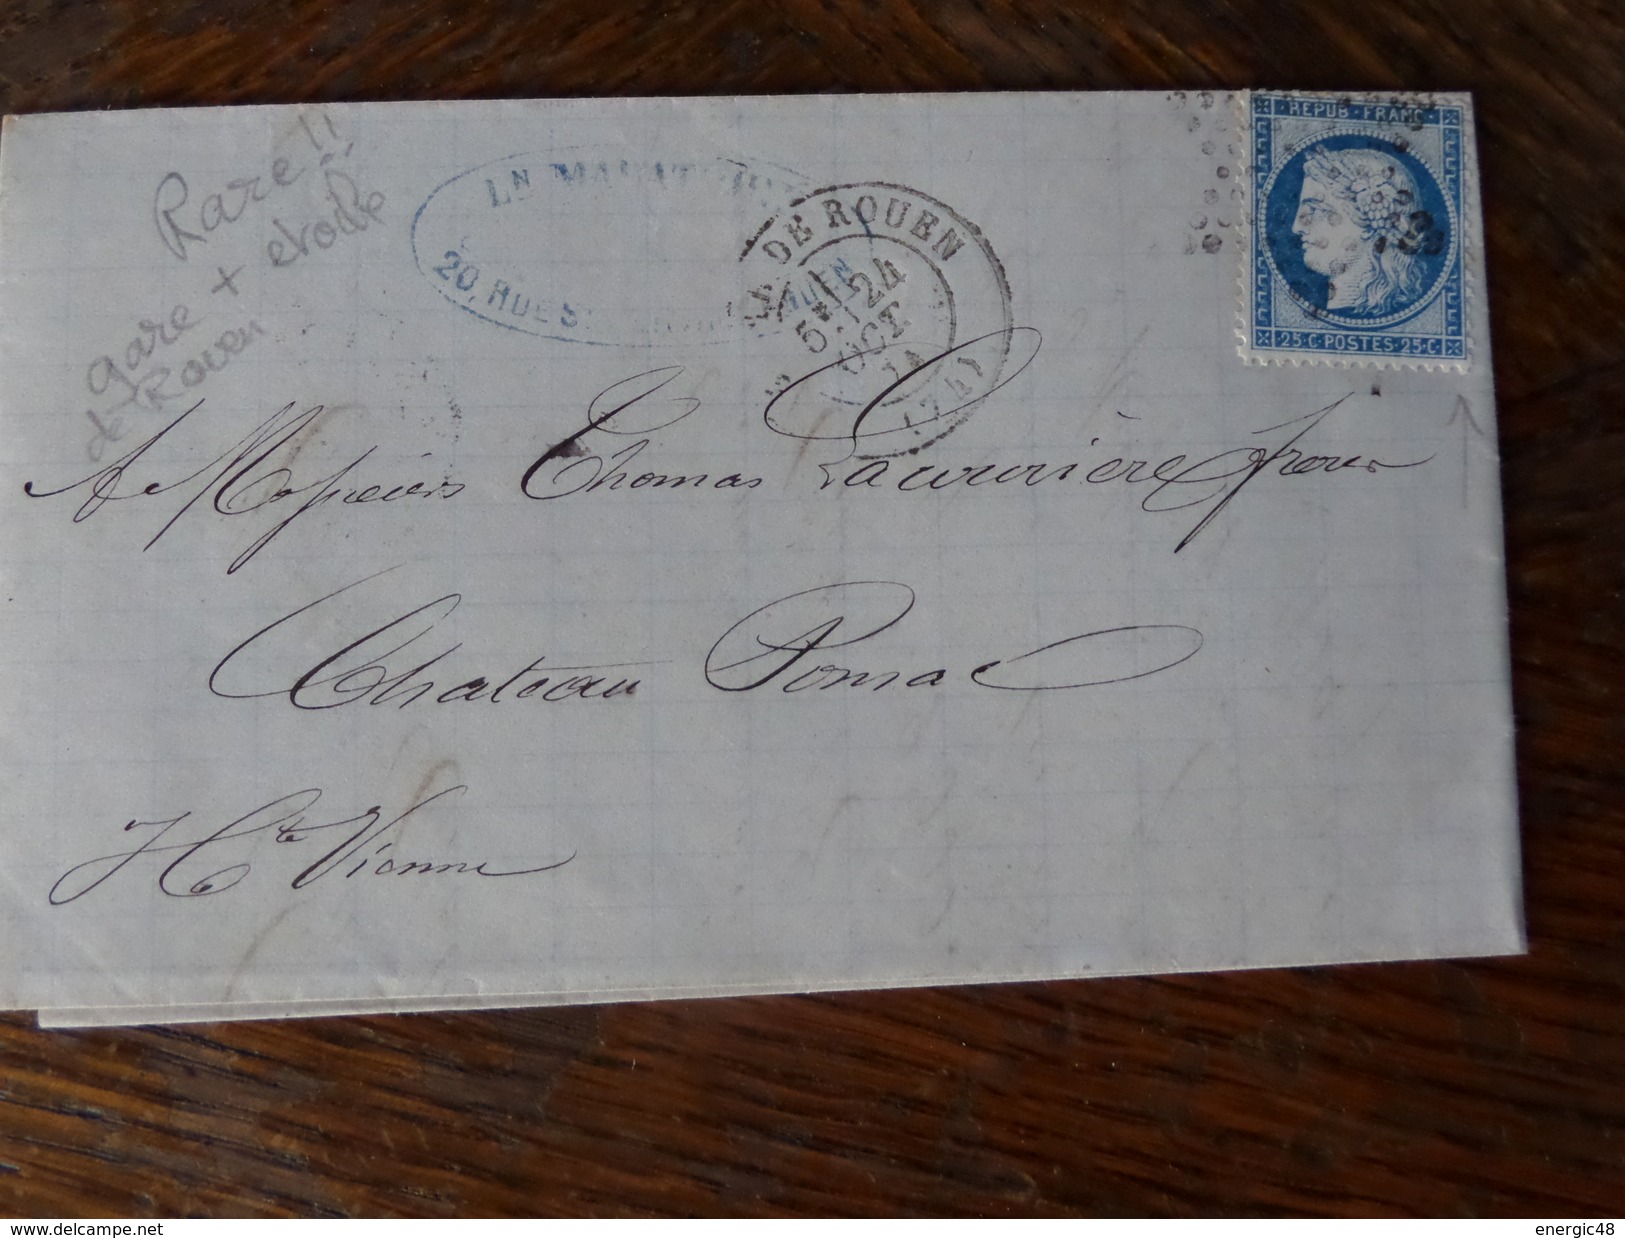 Rare !!
gare + etoile
de Rouen
LN
20, RUE S
DE ROUEN
5E
24
OCT
74
(74)
REPUB · FRANC
25·C·POSTES·25·C
A Messieurs Thomas Lacourrière frères
Chateau Ponsac
Hte Vienne
delcampe.net
energic48